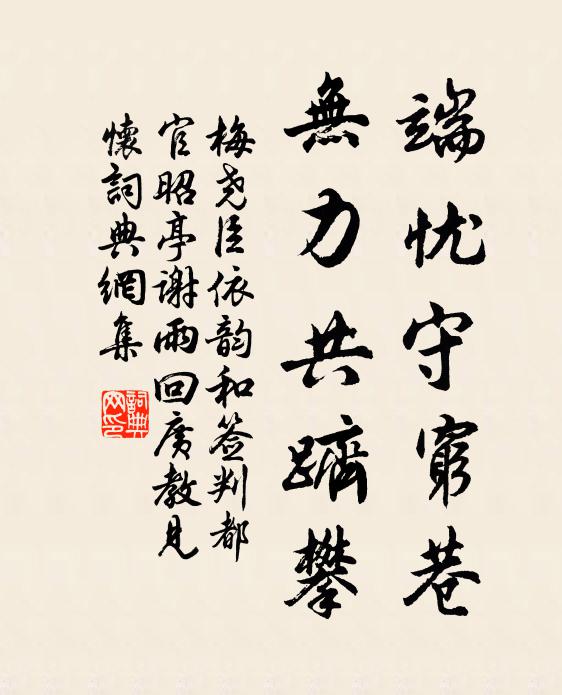 端忧守穷巷
無力共躋攀
梅尧臣依韵和签判都
官昭亭谢雨回廣教見
懷詞典網集
詞典
网印